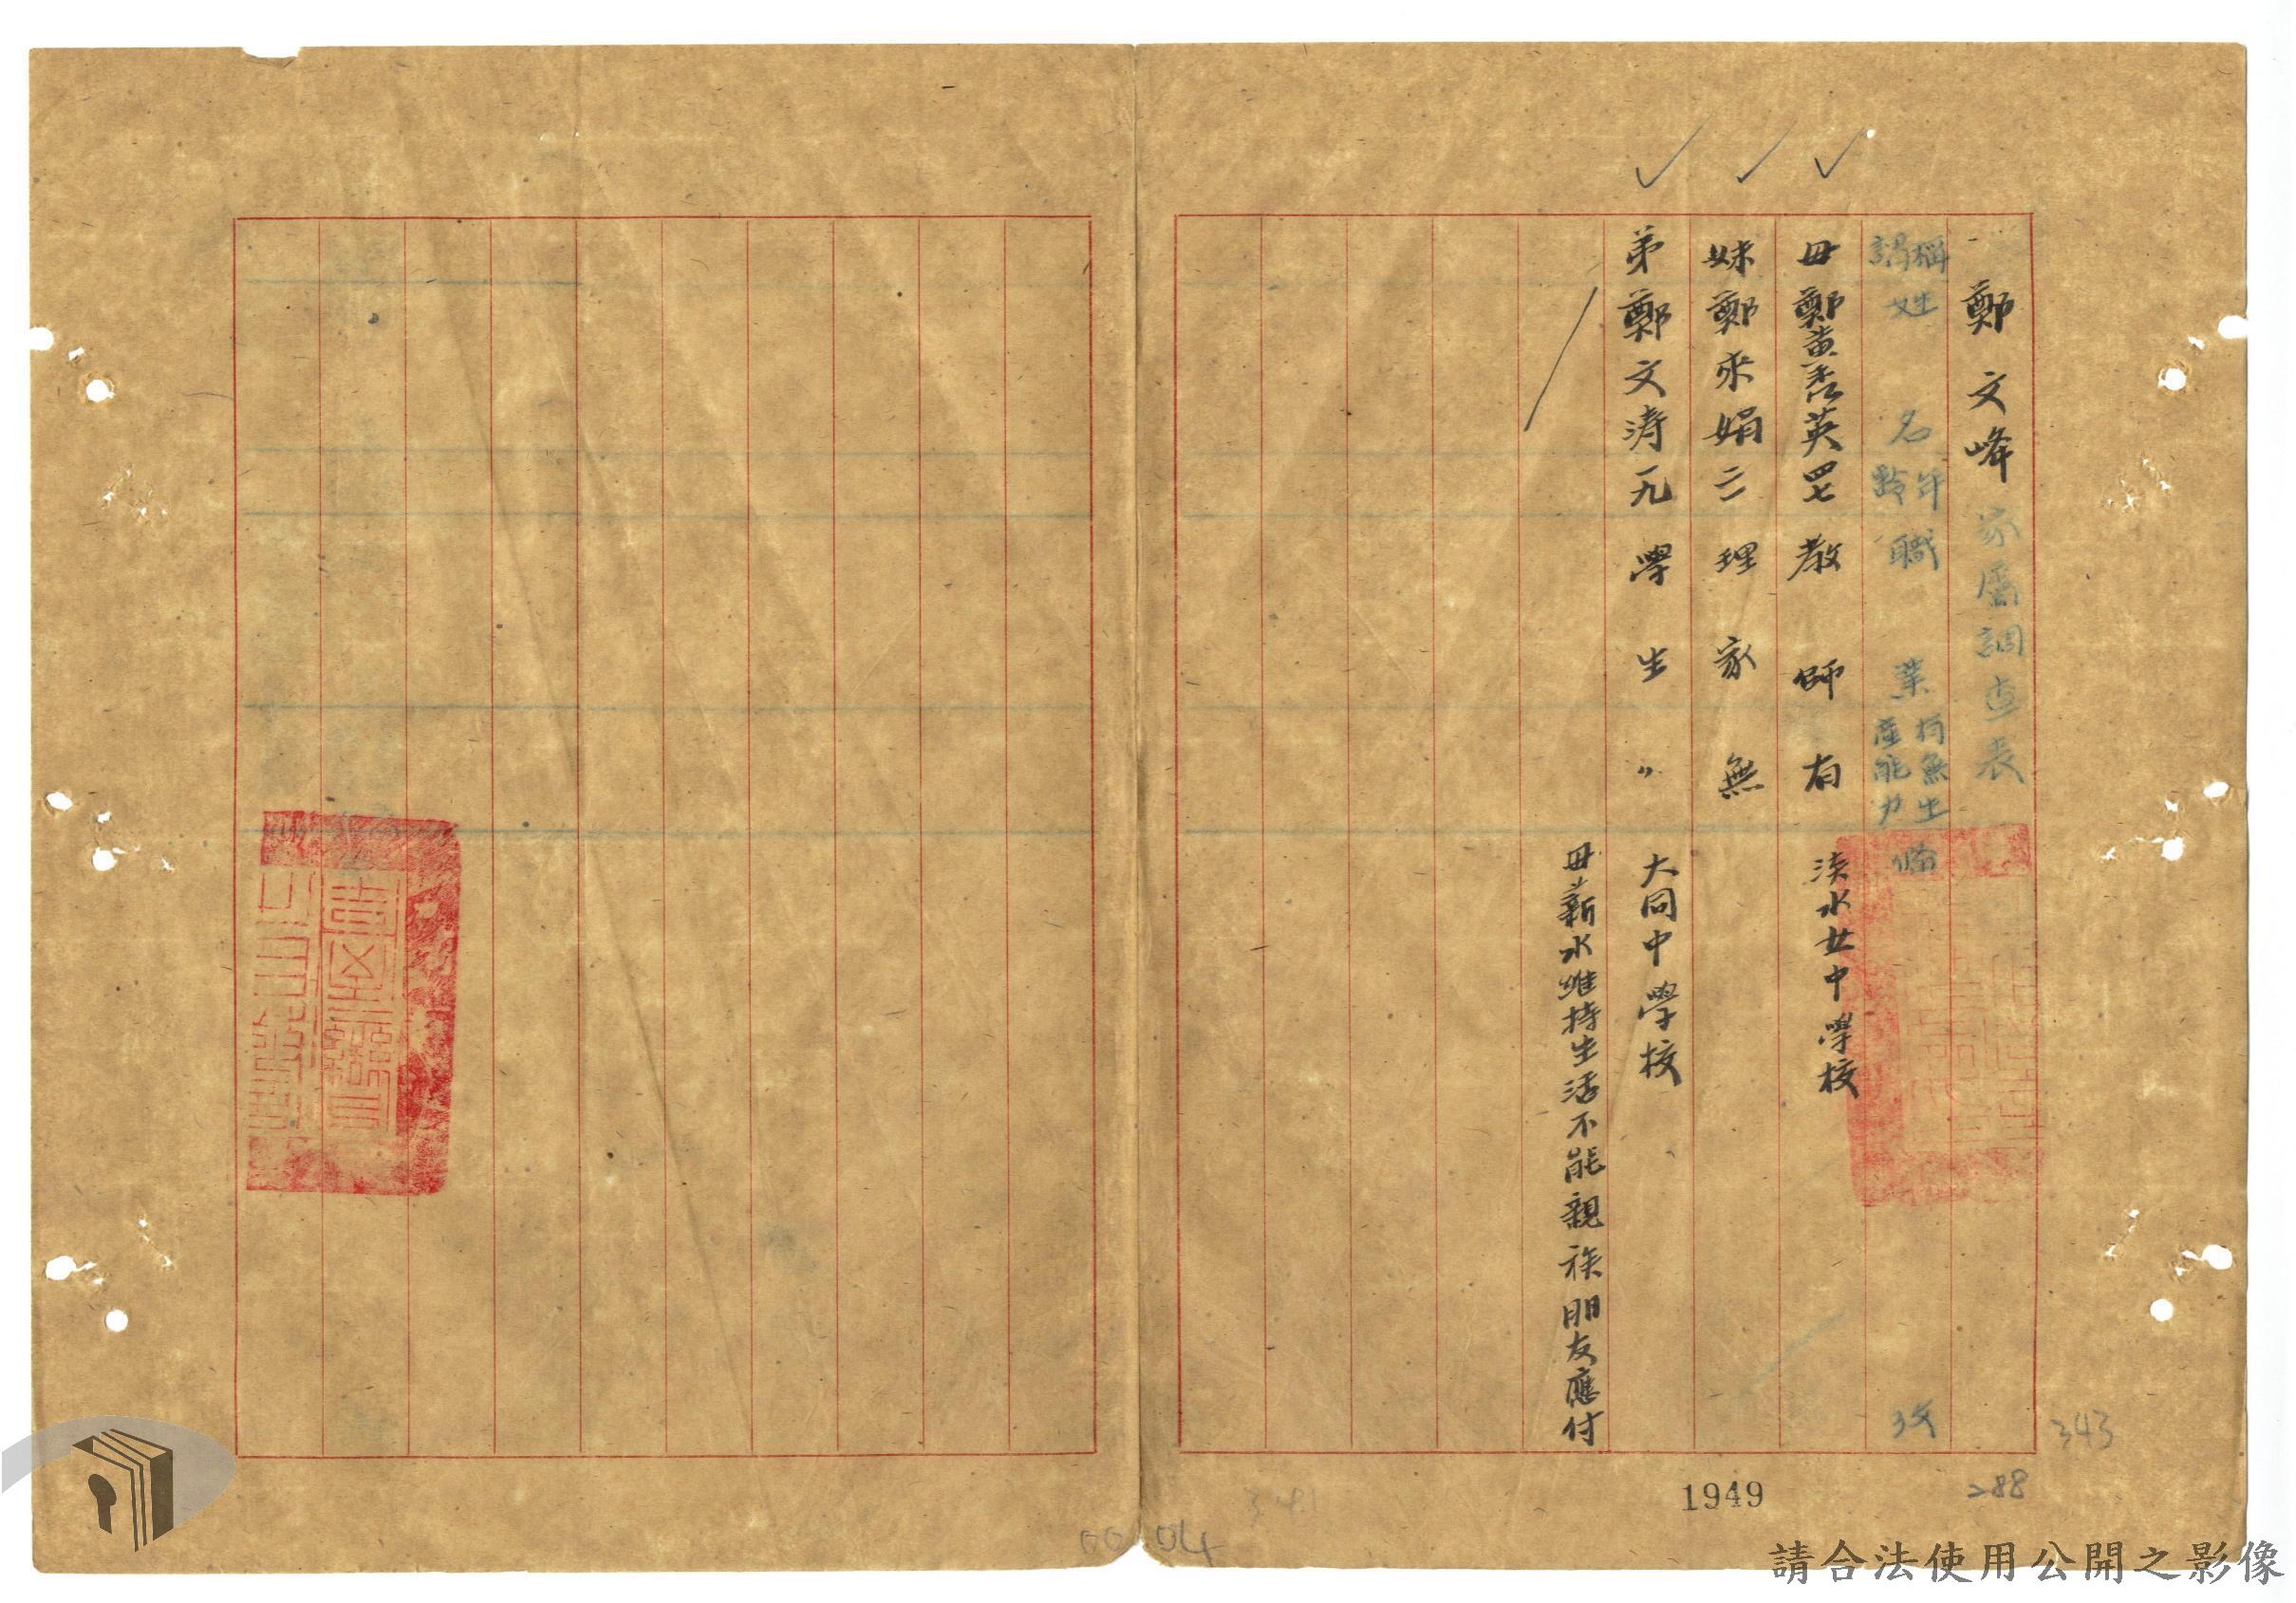 鄭文峰家屬調查表
稱謂 姓名 年齡 職業 有無生產能力 備攷
母 鄭黃杏英 四七 教師 有 淡水女中學校
妹 鄭來娟 二一 理家 無
弟 鄭文濤 一九 學生 〃 大同中學校
母薪水維持生活不能親族朋友應付
343
288
1949
00 04
請合法使用公開之影像